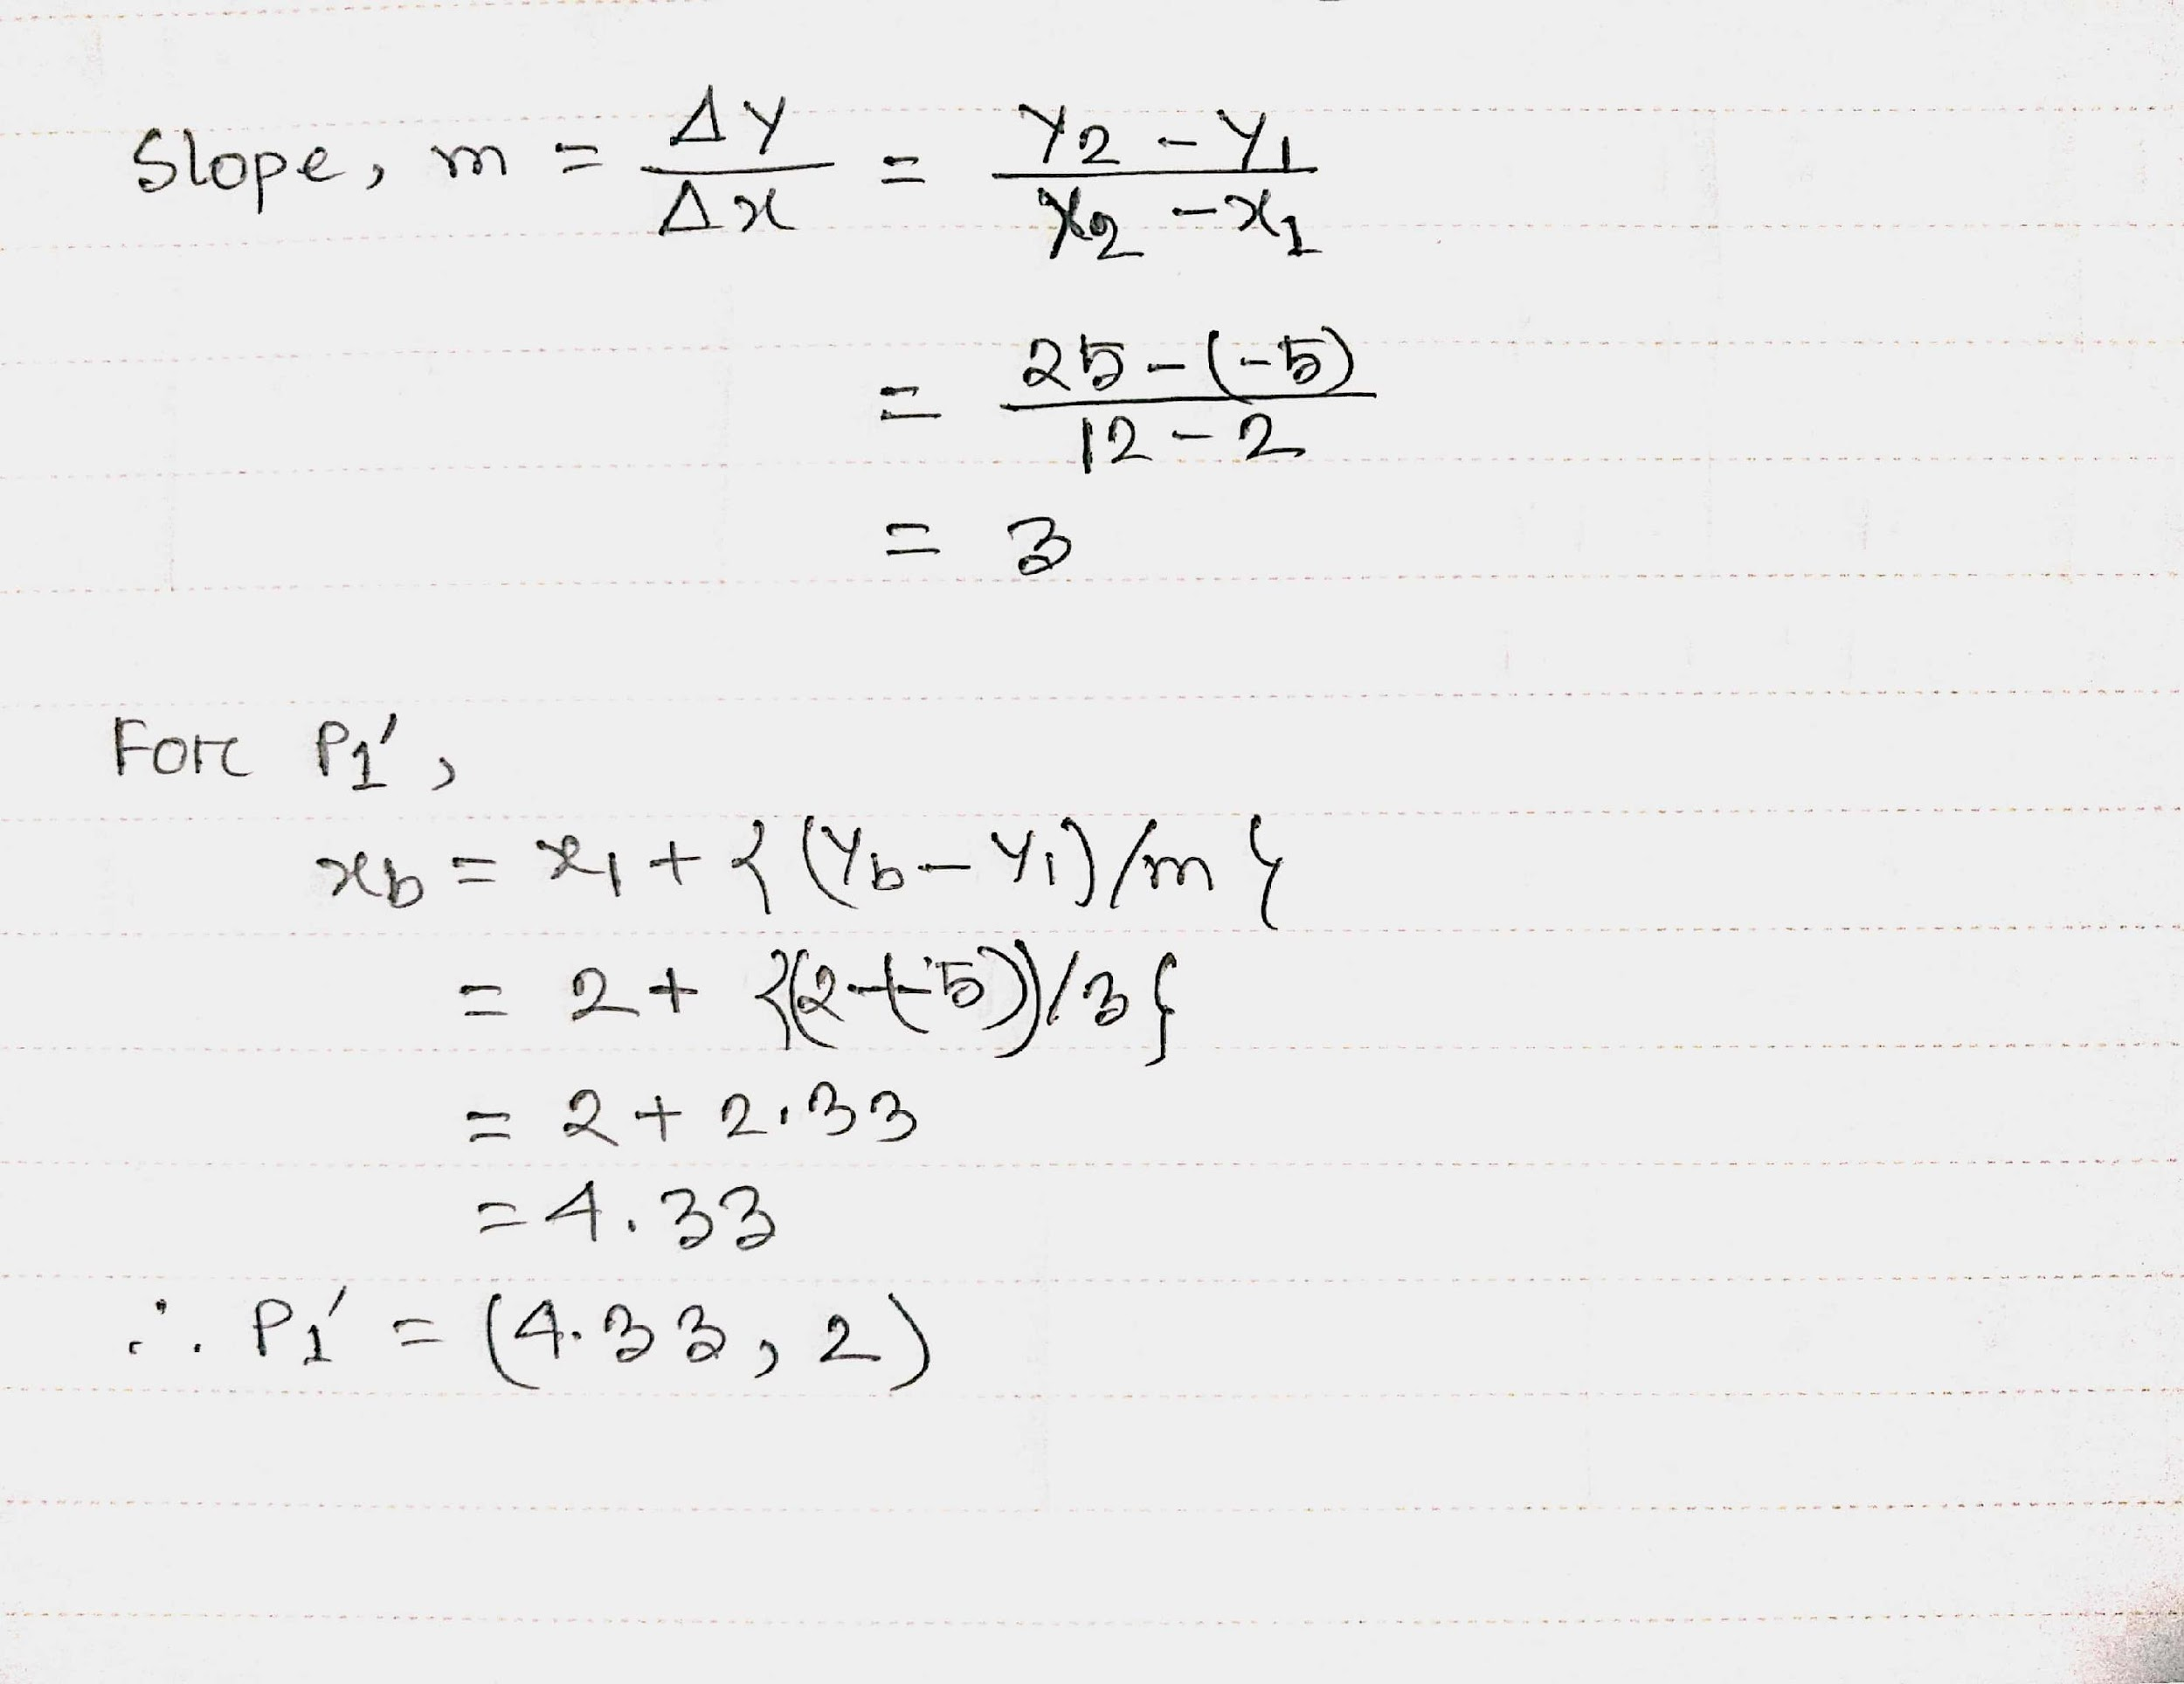 Slope, m = Δy/Δx = y2 - y1/x2 - x1
= 25 - (-5)/12 - 2
= 3
For P1',
xb = x1 + {(yb - y1)/m}
= 2 + {(2-(-5))/3}
= 2 + 2.33
= 4.33
∴ P1' = (4.33, 2)